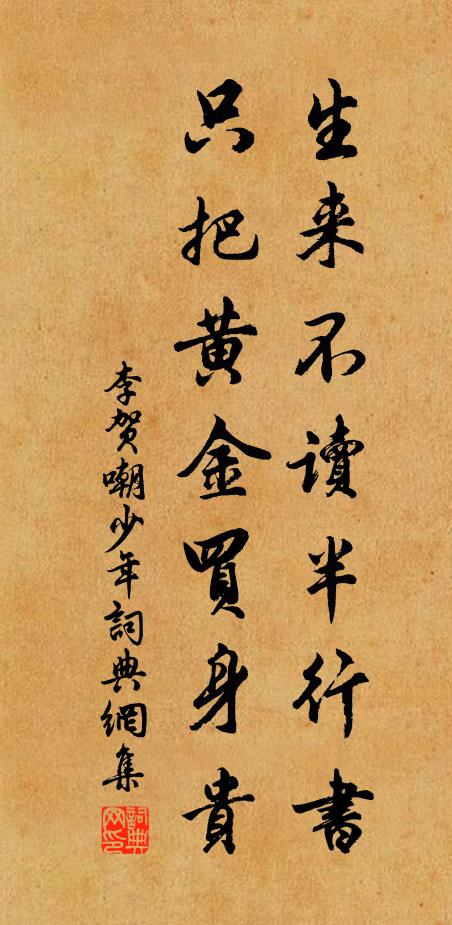 生来不讀半行書
只把黄金買身貴
李贺嘲少年詞典網集
詞典
网印